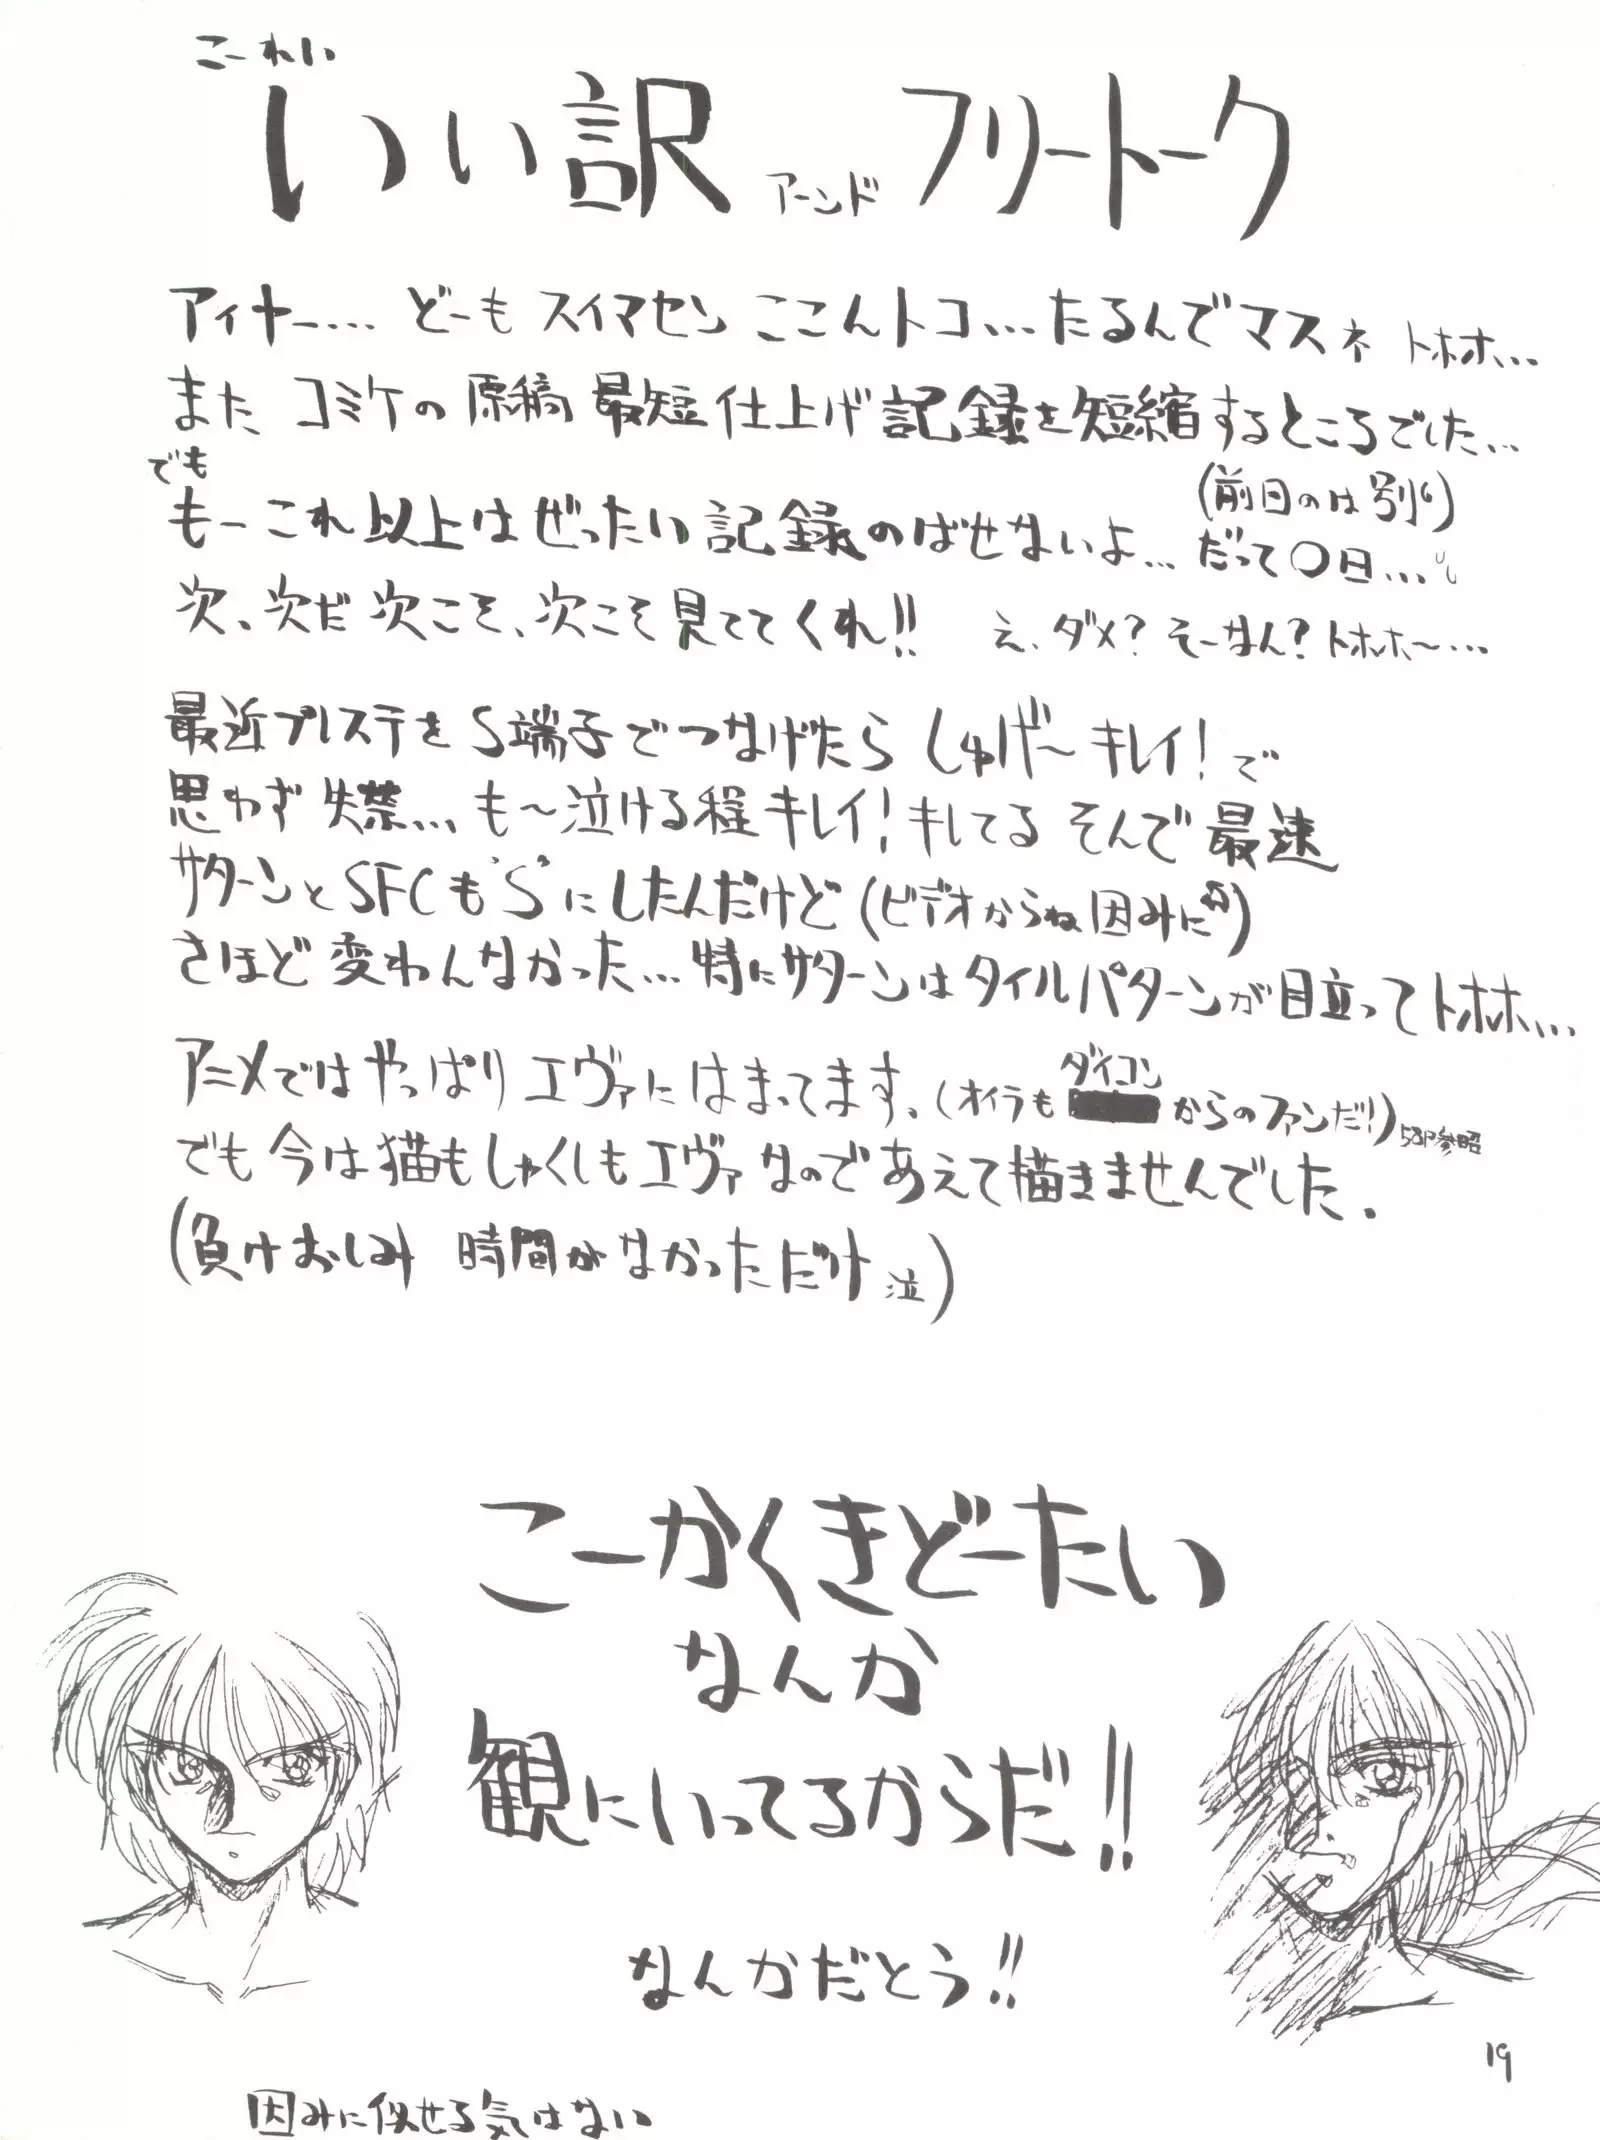 こーれい
いい訳 アーンド フリートーク
アイヤー…. どーも スイマセン ここんトコ…たるんでマスネ トホホ…
また コミケの 原稿 最短 仕上げ 記録を 短縮するところでした…
でも
(前日のは別)
もーこれ以上は ぜったい 記録のばせないよ… だって〇日…
次、次だ 次こそ、次こそ 見ててくれ!! え、ダメ? そーなん? トホホ〜…
最近プレステをS端子でつなげたら しゅげ〜 キレイ! で
思わず 失禁… も〜泣ける程 キレイ! キレてる そんで 最速
サターンと SFCも"S"にしたんだけど (ビデオからね 因みに)
さほど 変わんなかった… 特にサターンはタイルパターンが目立って トホホ…
アニメではやっぱり エヴァに はまってます。(オイラも ダイコン からのファンだ!) 58P参照
でも 今は猫もしゃくしもエヴァなのであえて描きませんでした.
(負けおしみ 時間がなかっただけ 泣)
こーかくきどーたい
なんか
観にいってるからだ!!
なんかだとう!!
19
因みに似せる気はない